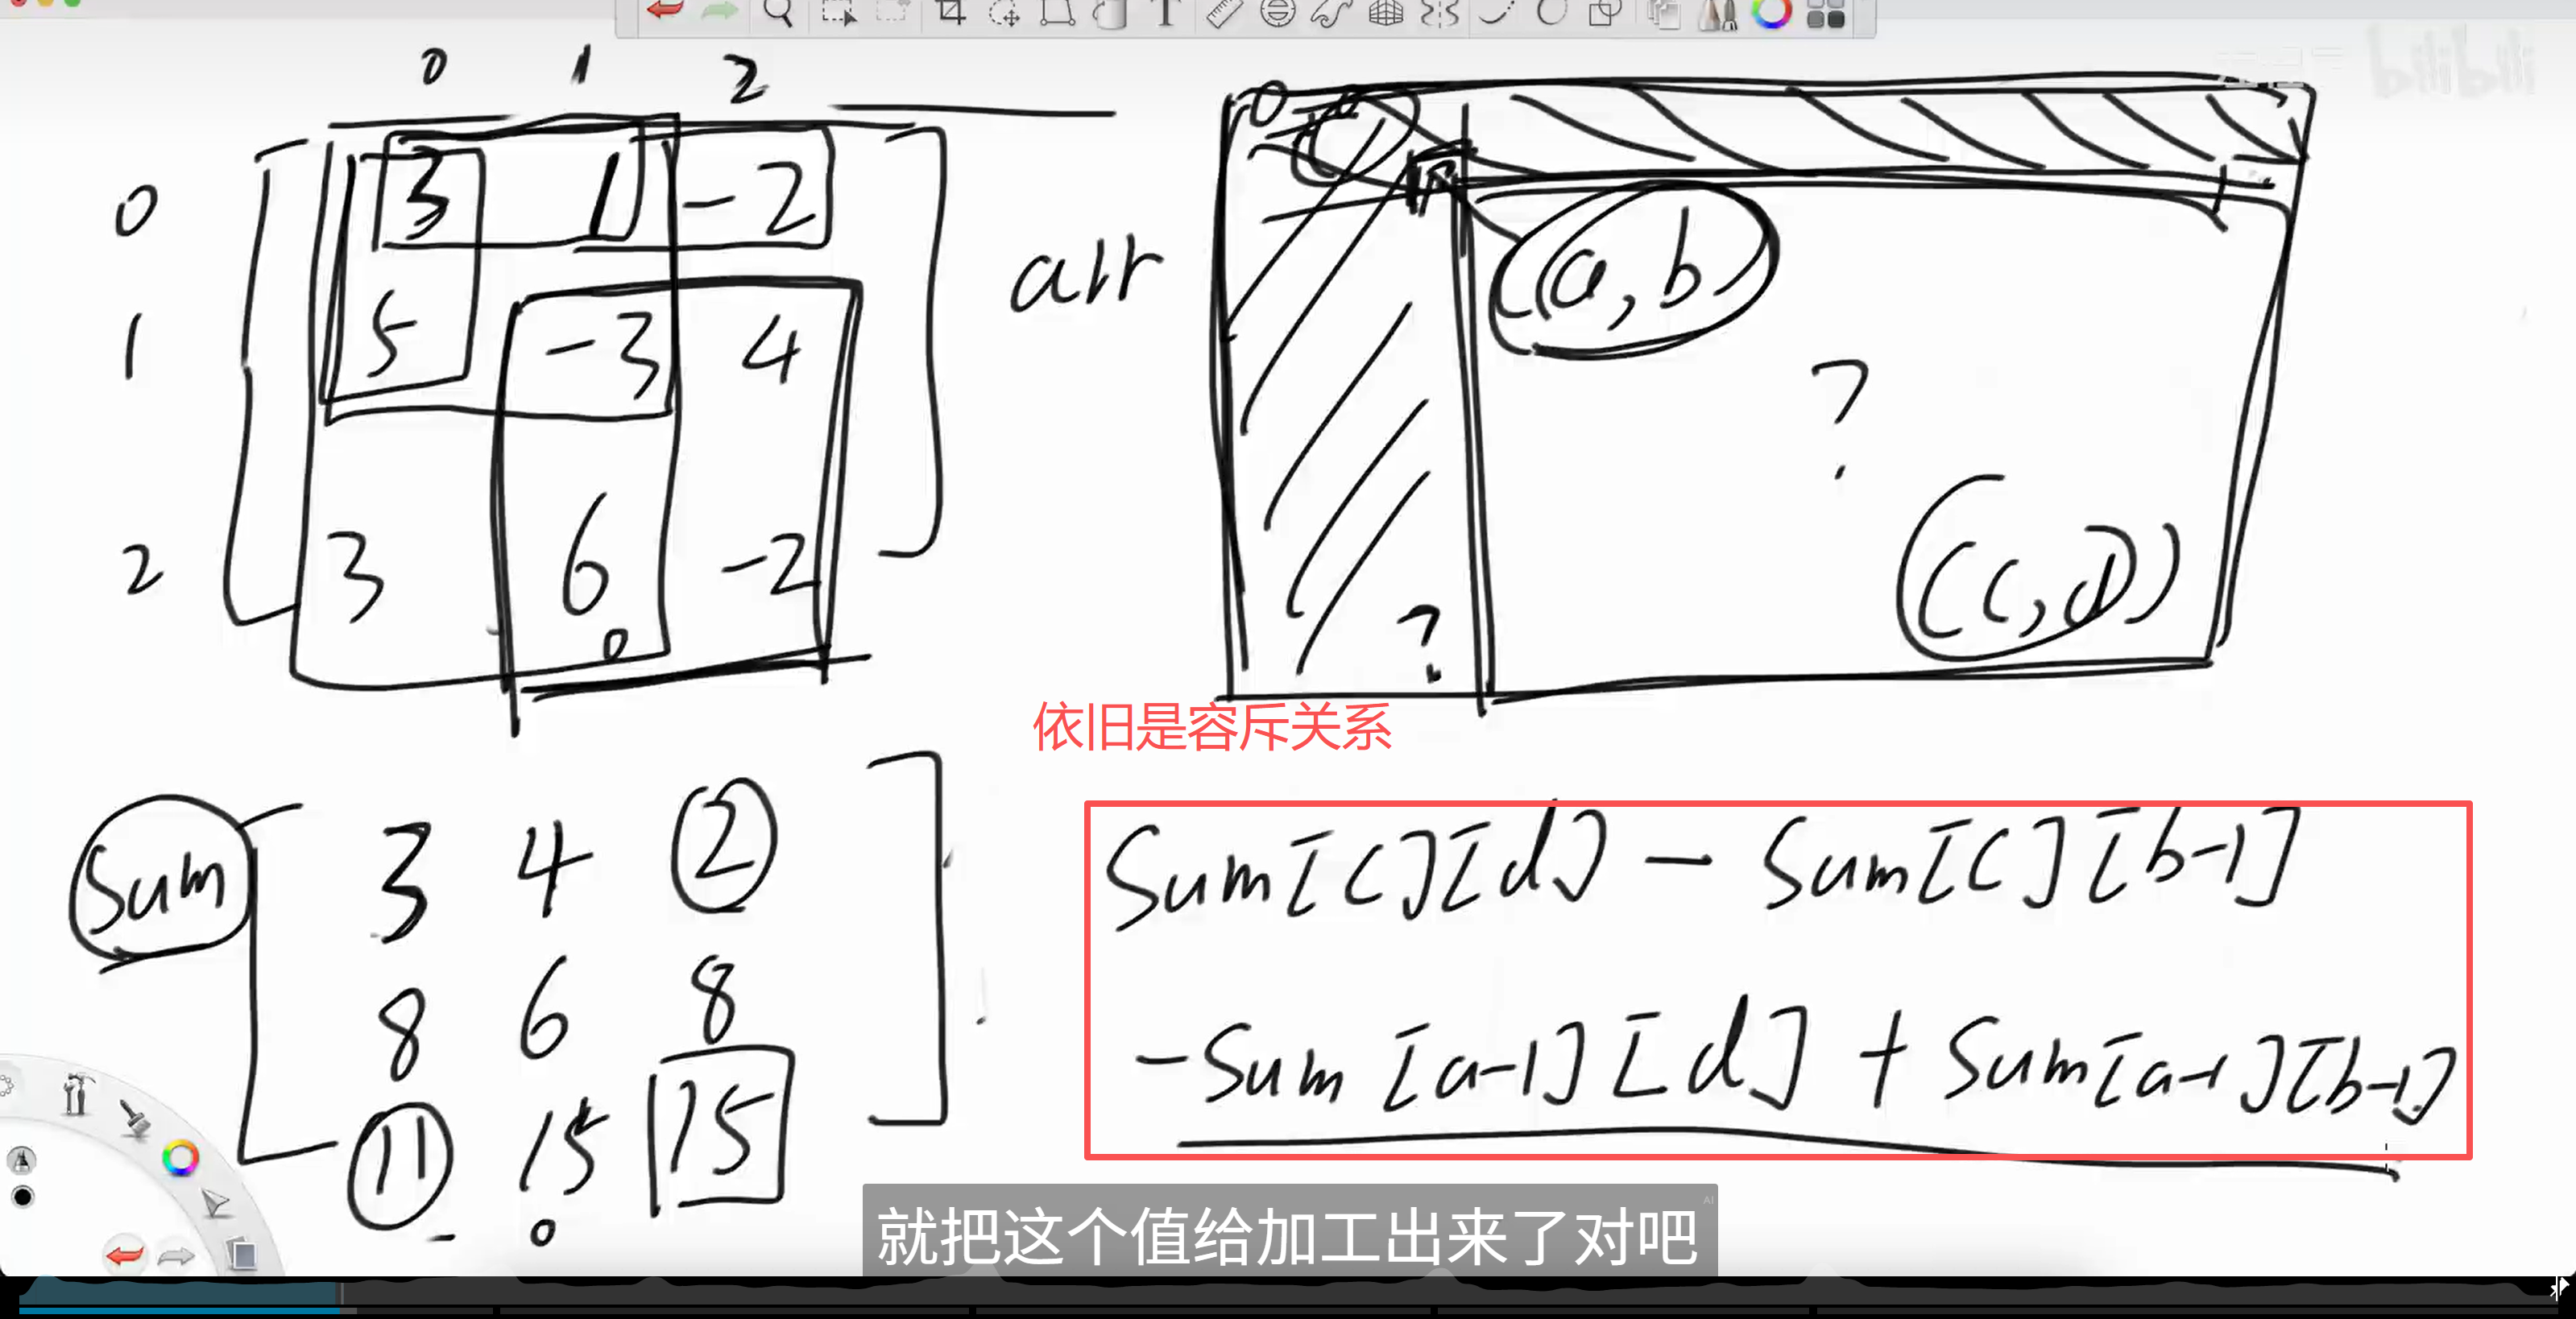 bilibili
0 1 2
0 3 1 -2
1 5 -3 4
2 3 6 -2
0
arr
0
(a,b)
?
(c,d)
?
依旧是容斥关系
Sum
3 4 2
8 6 8
11 15 15
0
Sum[c][d] - Sum[c][b-1]
-Sum[a-1][d] + Sum[a-1][b-1]
就把这个值给加工出来了对吧
AI